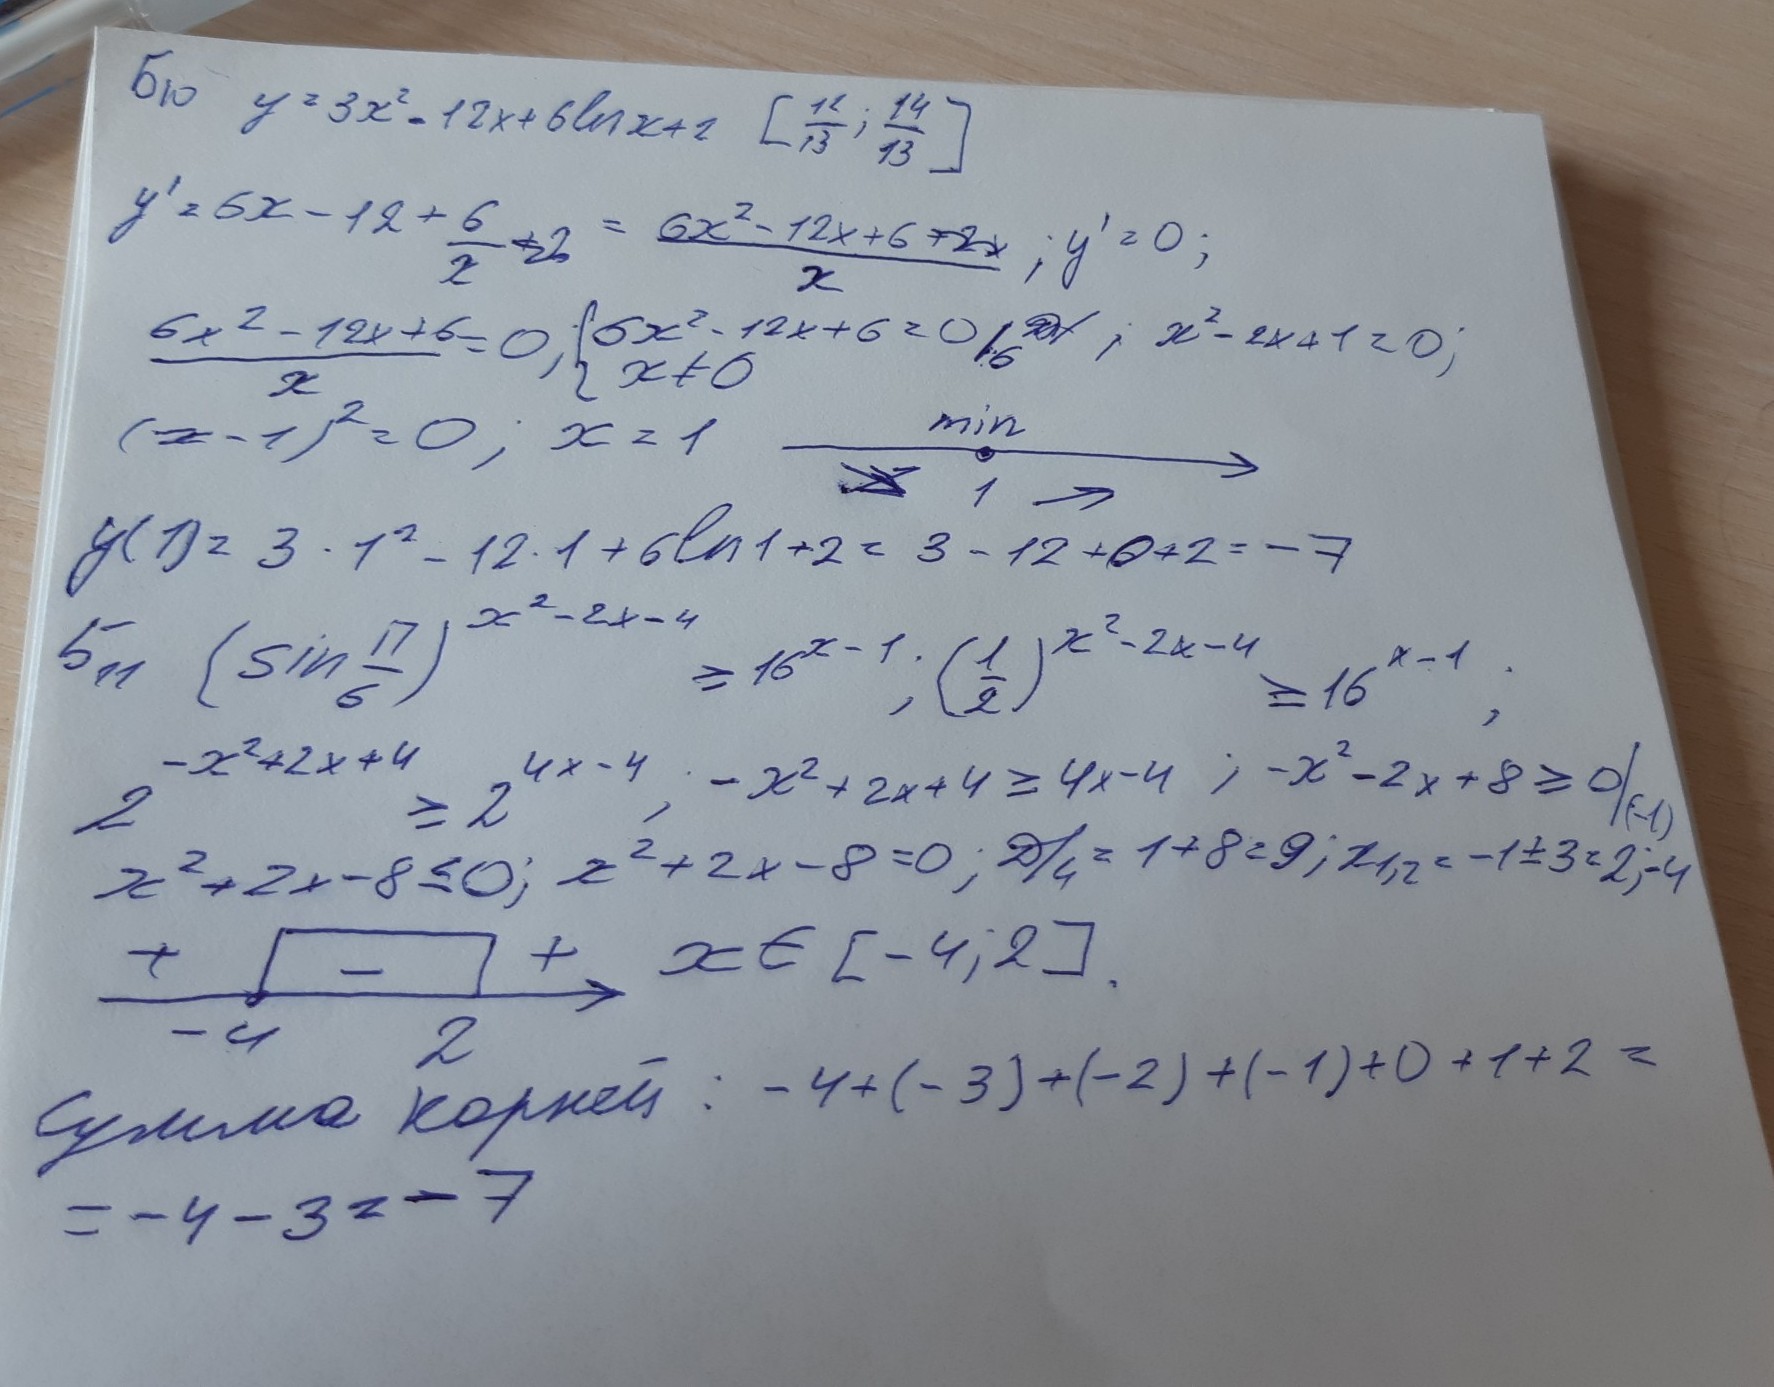 Б10 y = 3x² - 12x + 6 ln x + 2 [12/13; 14/13]
y' = 6x - 12 + 6/x = (6x² - 12x + 6)/x; y' = 0;
(6x² - 12x + 6)/x = 0, { 6x² - 12x + 6 = 0 |:6 ; x² - 2x + 1 = 0;
x ≠ 0
(x - 1)² = 0; x = 1 min
1
y(1) = 3 · 1² - 12 · 1 + 6 ln 1 + 2 = 3 - 12 + 0 + 2 = -7
Б11 (sin π/6)^(x² - 2x - 4) ≥ 16^(x - 1); (1/2)^(x² - 2x - 4) ≥ 16^(x - 1);
2^(-x² + 2x + 4) ≥ 2^(4x - 4); -x² + 2x + 4 ≥ 4x - 4; -x² - 2x + 8 ≥ 0 |(-1)
x² + 2x - 8 ≤ 0; x² + 2x - 8 = 0; D/4 = 1 + 8 = 9; x1,2 = -1 ± 3 = 2; -4
+ - + x ∈ [-4; 2].
-4 2
Сумма корней: -4 + (-3) + (-2) + (-1) + 0 + 1 + 2 =
= -4 - 3 = -7